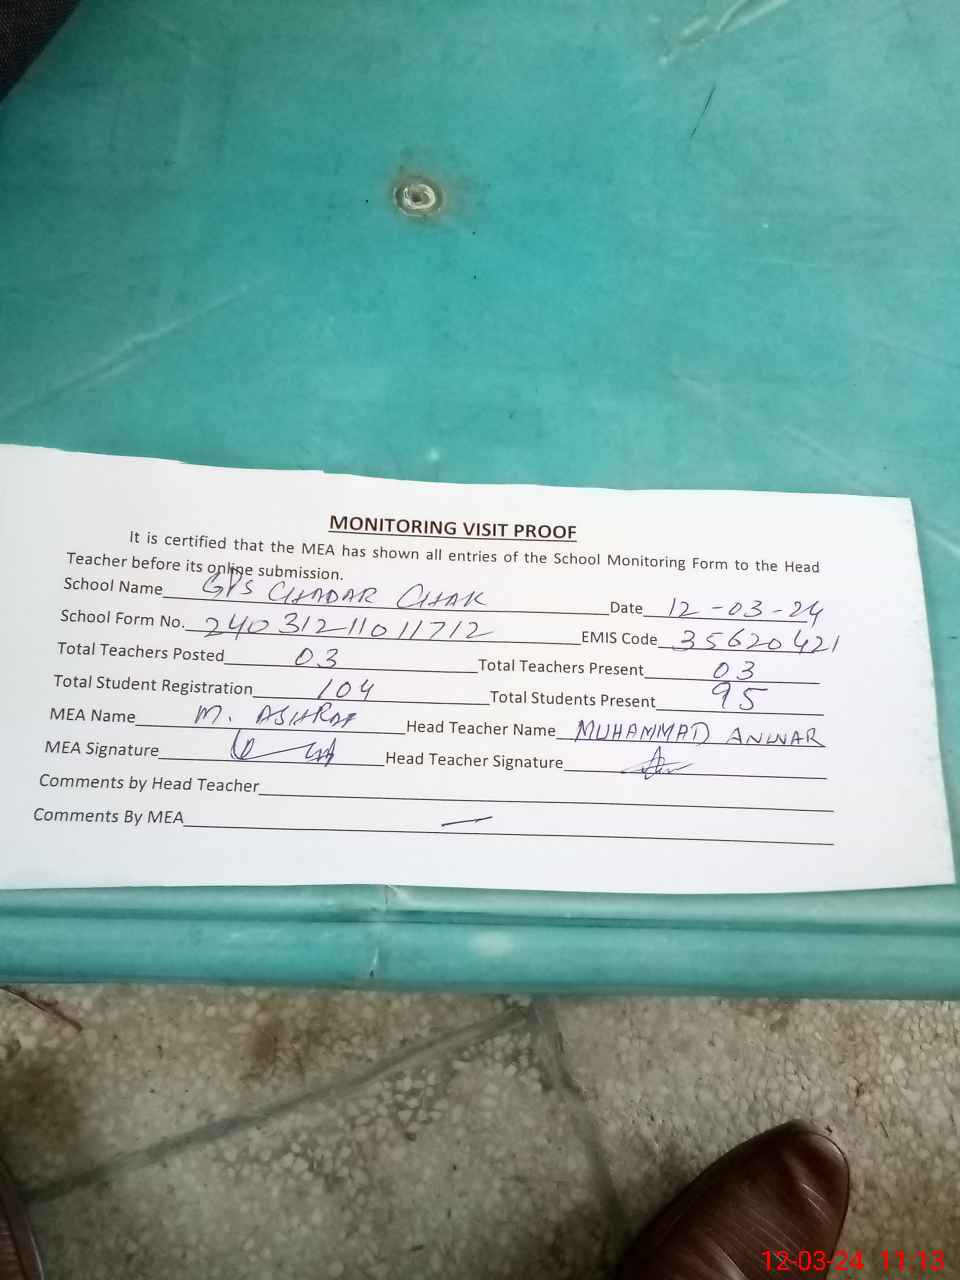 MONITORING VISIT PROOF
It is certified that the MEA has shown all entries of the School Monitoring Form to the Head
Teacher before its online submission.
School Name GPS CHADAR CHAK Date 12-03-24
School Form No. 24031211011712 EMIS Code 35620421
Total Teachers Posted 03 Total Teachers Present 03
Total Student Registration 104 Total Students Present 95
MEA Name M. ASHRAF Head Teacher Name MUHAMMAD ANWAR
MEA Signature Head Teacher Signature
Comments by Head Teacher
Comments By MEA —
12-03-24 11:13